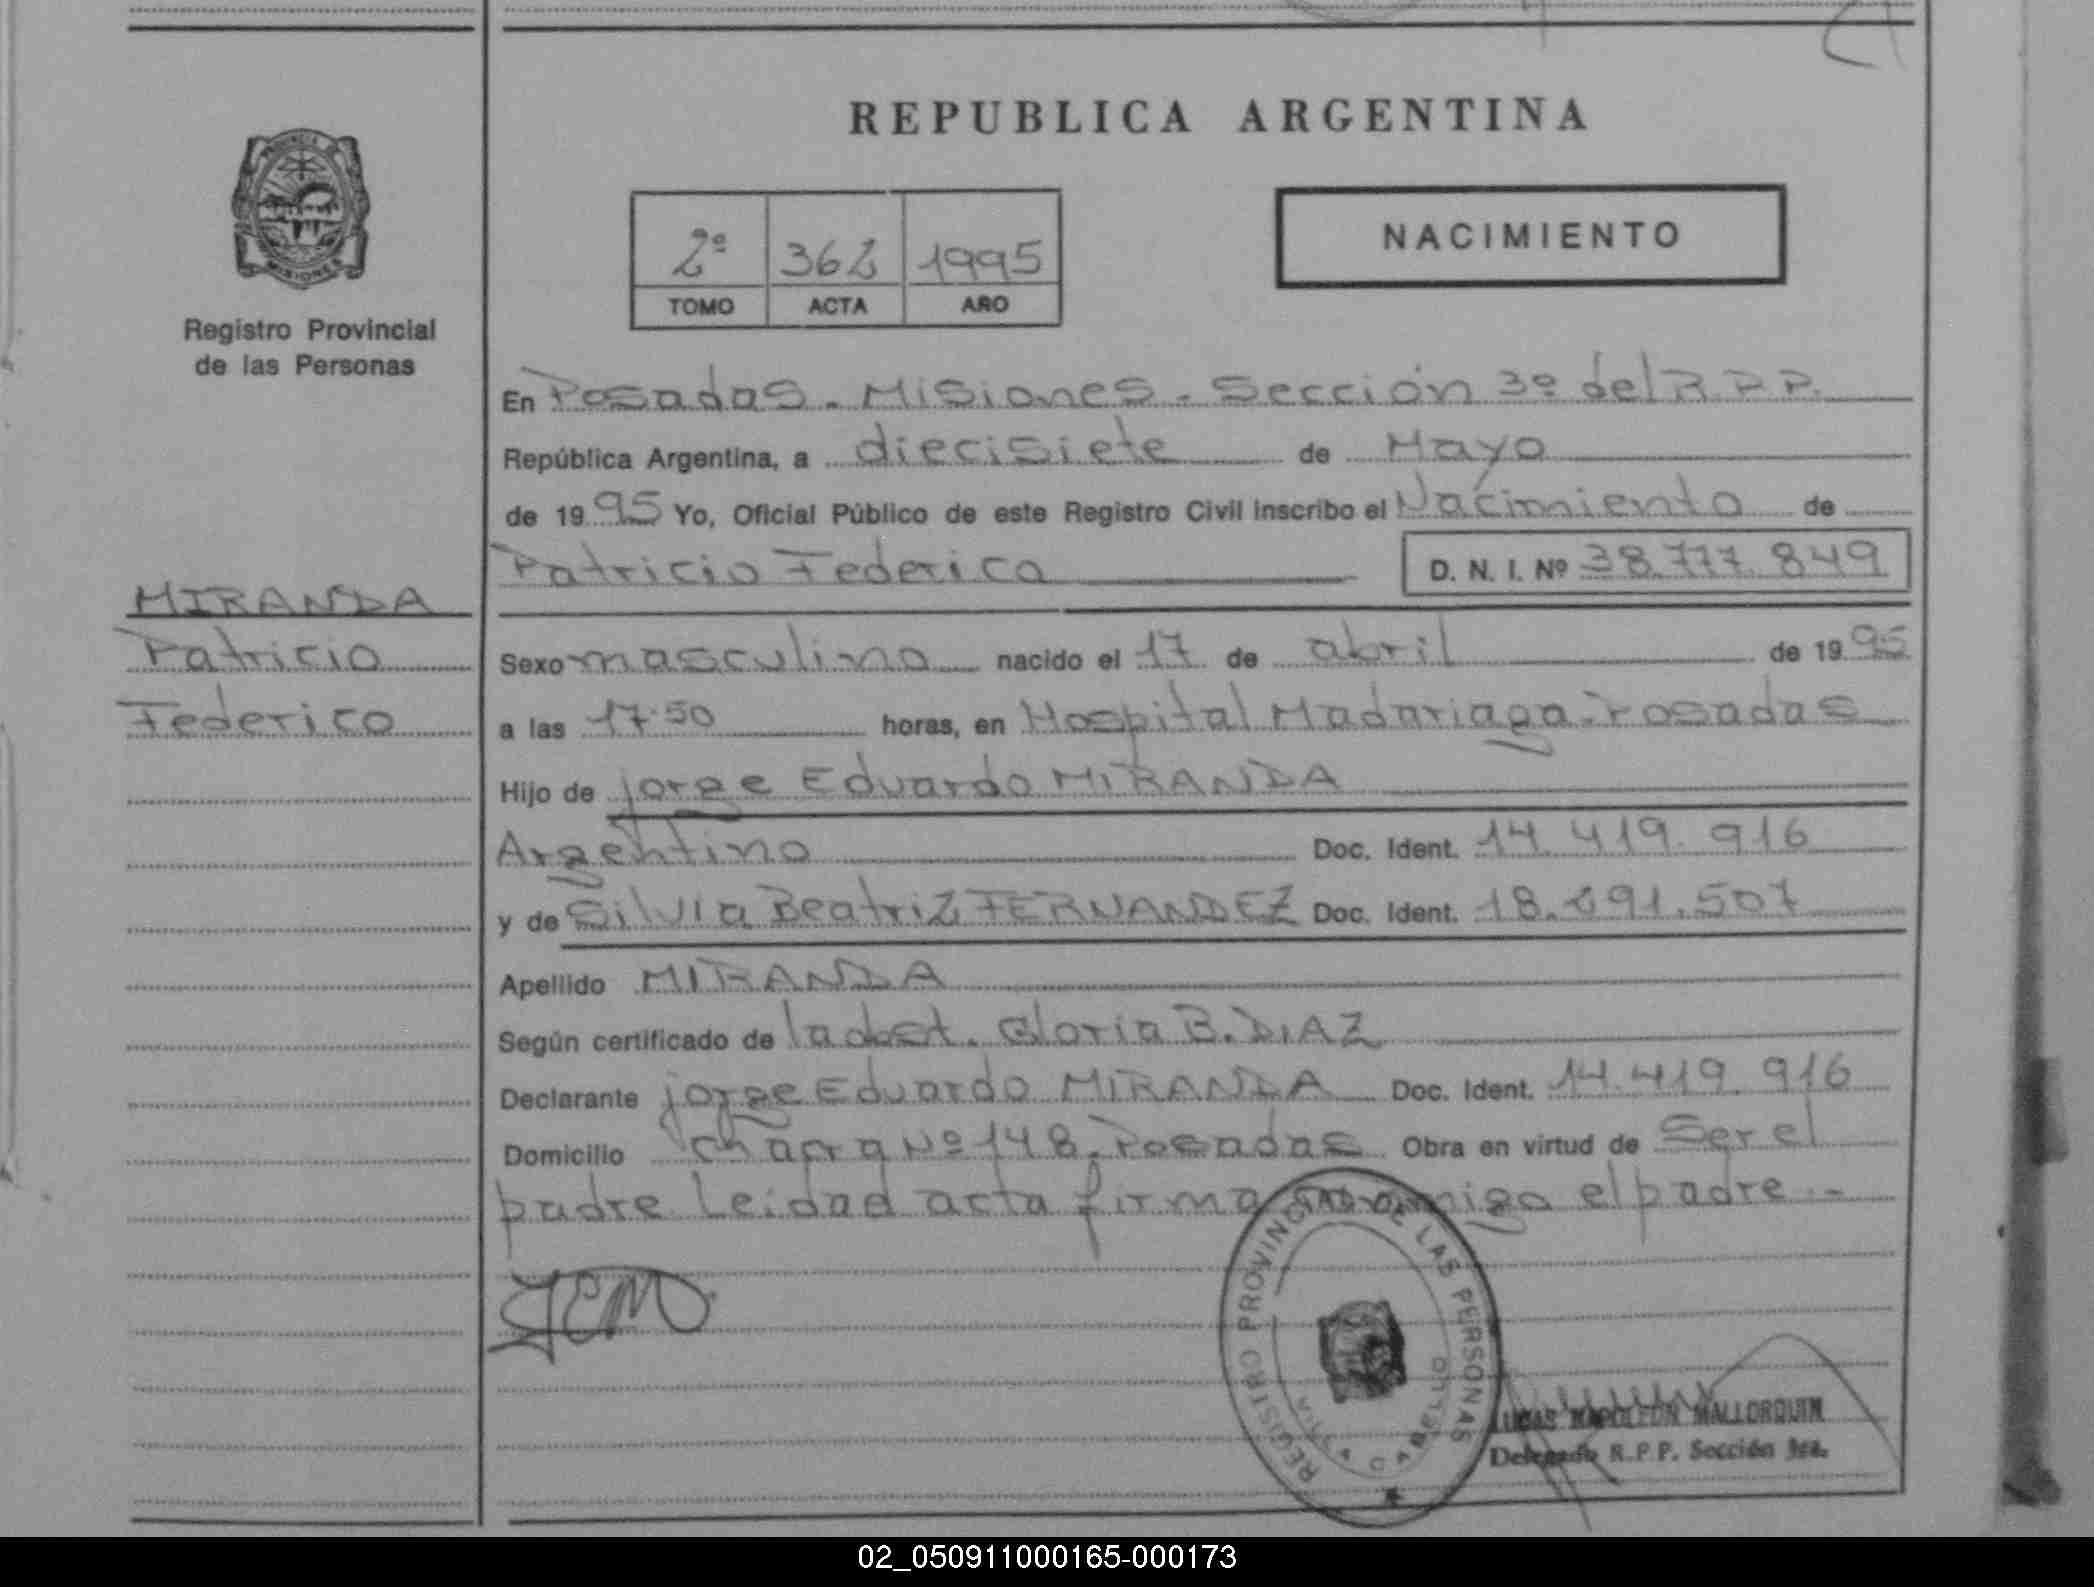 REPUBLICA ARGENTINA
PROVINCIA DE
MISIONES
Registro Provincial
de las Personas
2º 362 1995
TOMO ACTA AÑO
NACIMIENTO
En Posadas - Misiones - Sección 3º del R.P.P.
República Argentina, a diecisiete de Mayo
de 1995 Yo, Oficial Público de este Registro Civil inscribo el Nacimiento de
Patricio Federico D. N. I. Nº 38.777.849
MIRANDA
Patricio
Federico
Sexo masculino nacido el 17 de abril de 1995
a las 17.50 horas, en Hospital Madariaga - Posadas
Hijo de jorge Eduardo MIRANDA
Argentino Doc. Ident. 14.419.916
y de Silvia Beatriz FERNANDEZ Doc. Ident.
Apellido MIRANDA
Según certificado de la obst. Gloria B. DIAZ
Declarante jorge Eduardo MIRANDA Doc. Ident. 14.419.916
Domicilio Chacra Nº 148. Posadas Obra en virtud de Ser el
padre. Leidad acta firma conmigo el padre -
JEM
REGISTRO PROVINCIAL DE LAS PERSONAS
VILLA CABELLO
LUCAS NAPOLEON MALLORQUIN
Delegado R.P.P. Sección 3ra.
02_050911000165-000173